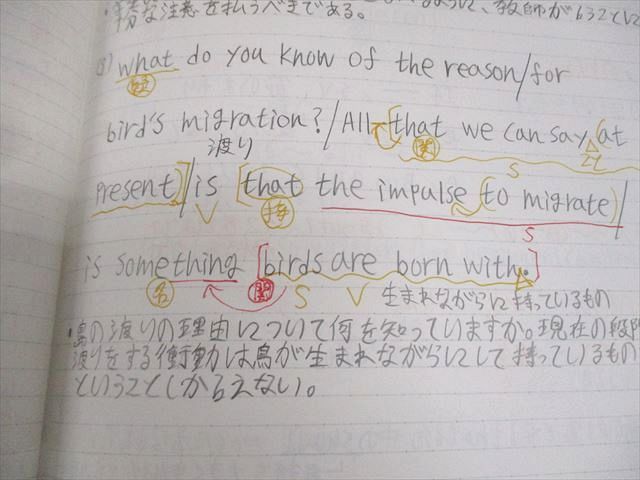 特な注意を払うべきである。 教師が
what do you know of the reason/for
疑
bird's migration?/All that we can say (at
渡り 関
S M
present)]/is [that the impulse (to migrate)/
V 接 S
is something [birds are born with.]
名 関 S V 生まれながらに持っているもの
・鳥の渡りの理由について何を知っていますか。現在の段階
渡りをする衝動は鳥が生まれながらにして持っているもの
ということしかいえない。